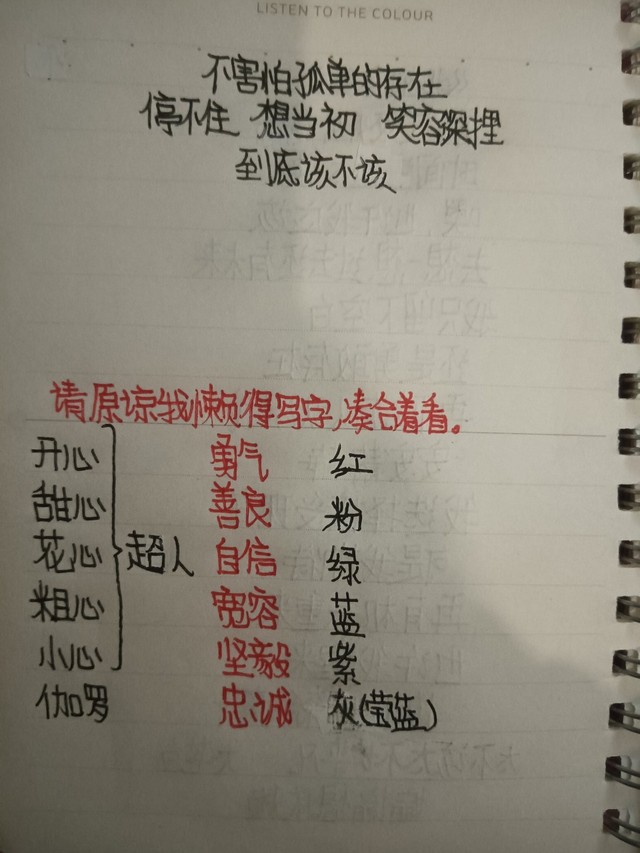 LISTEN TO THE COLOUR
不害怕孤单的存在
停不住 想当初 笑容深埋
到底该不该
请原谅我懒得写字,凑合着看。
开心 勇气 红
甜心 善良 粉
花心 超人 自信 绿
粗心 宽容 蓝
小心 坚毅 紫
伽罗 忠诚 灰(莹蓝)